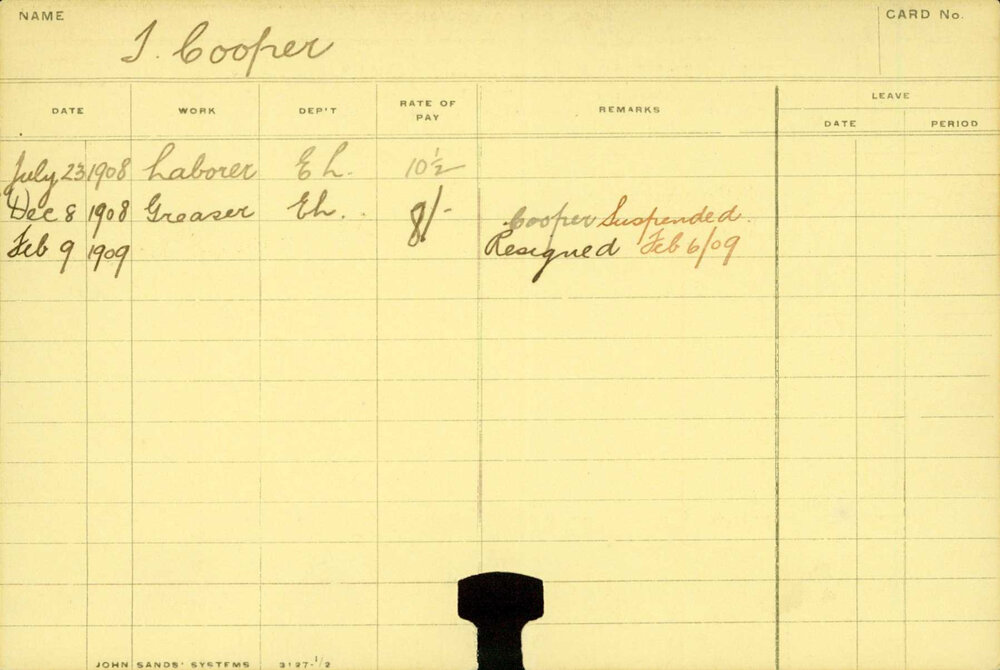 NAME
J. Cooper
CARD No.
DATE WORK DEP'T RATE OF PAY REMARKS LEAVE
DATE PERIOD
July 23 1908 Laborer Eh. 10½
Dec 8 1908 Greaser Eh. 8/- Cooper Suspended.
Feb 9 1909 Resigned Feb 6/09
JOHN SANDS' SYSTEMS 3127-1/2